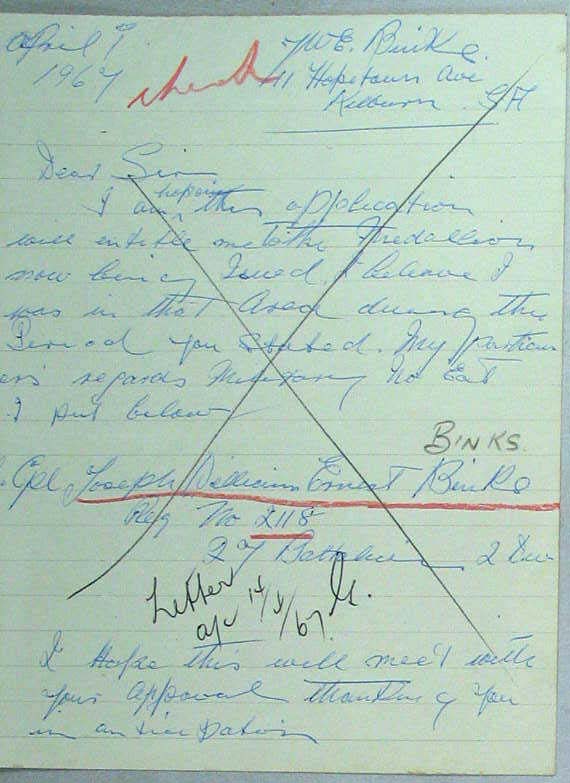 April 9 J W E. Binks.
1967 check 41 Hopetown Ave
Kilburn. S A
Dear Sir
hopeing
I am this application
will entitle me to the Medallion
now being Isued. I believe I
was in that Area during the
Period you stated. My particu
ers regards Military No Ect
I put below
BINKS.
Cpl Joseph William Ernest Binks
Reg No 2118
27 Battalion 2 Div
Letter
14/4/67
I Hope this will meet with
your approval thanking you
in anticipation